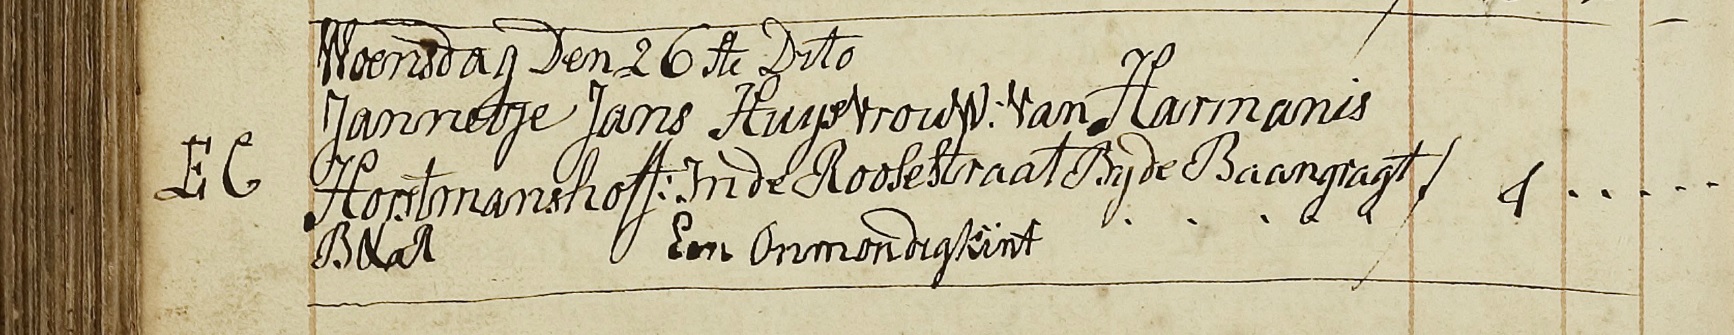 Woensdag Den 26 ste Dito
Jannetje Jans Huysvrouw: Van Harmanis
EC Horstmanshoff: In de Roosestraat By de Baangragt / 4 . . . . .
Een Onmondig kint